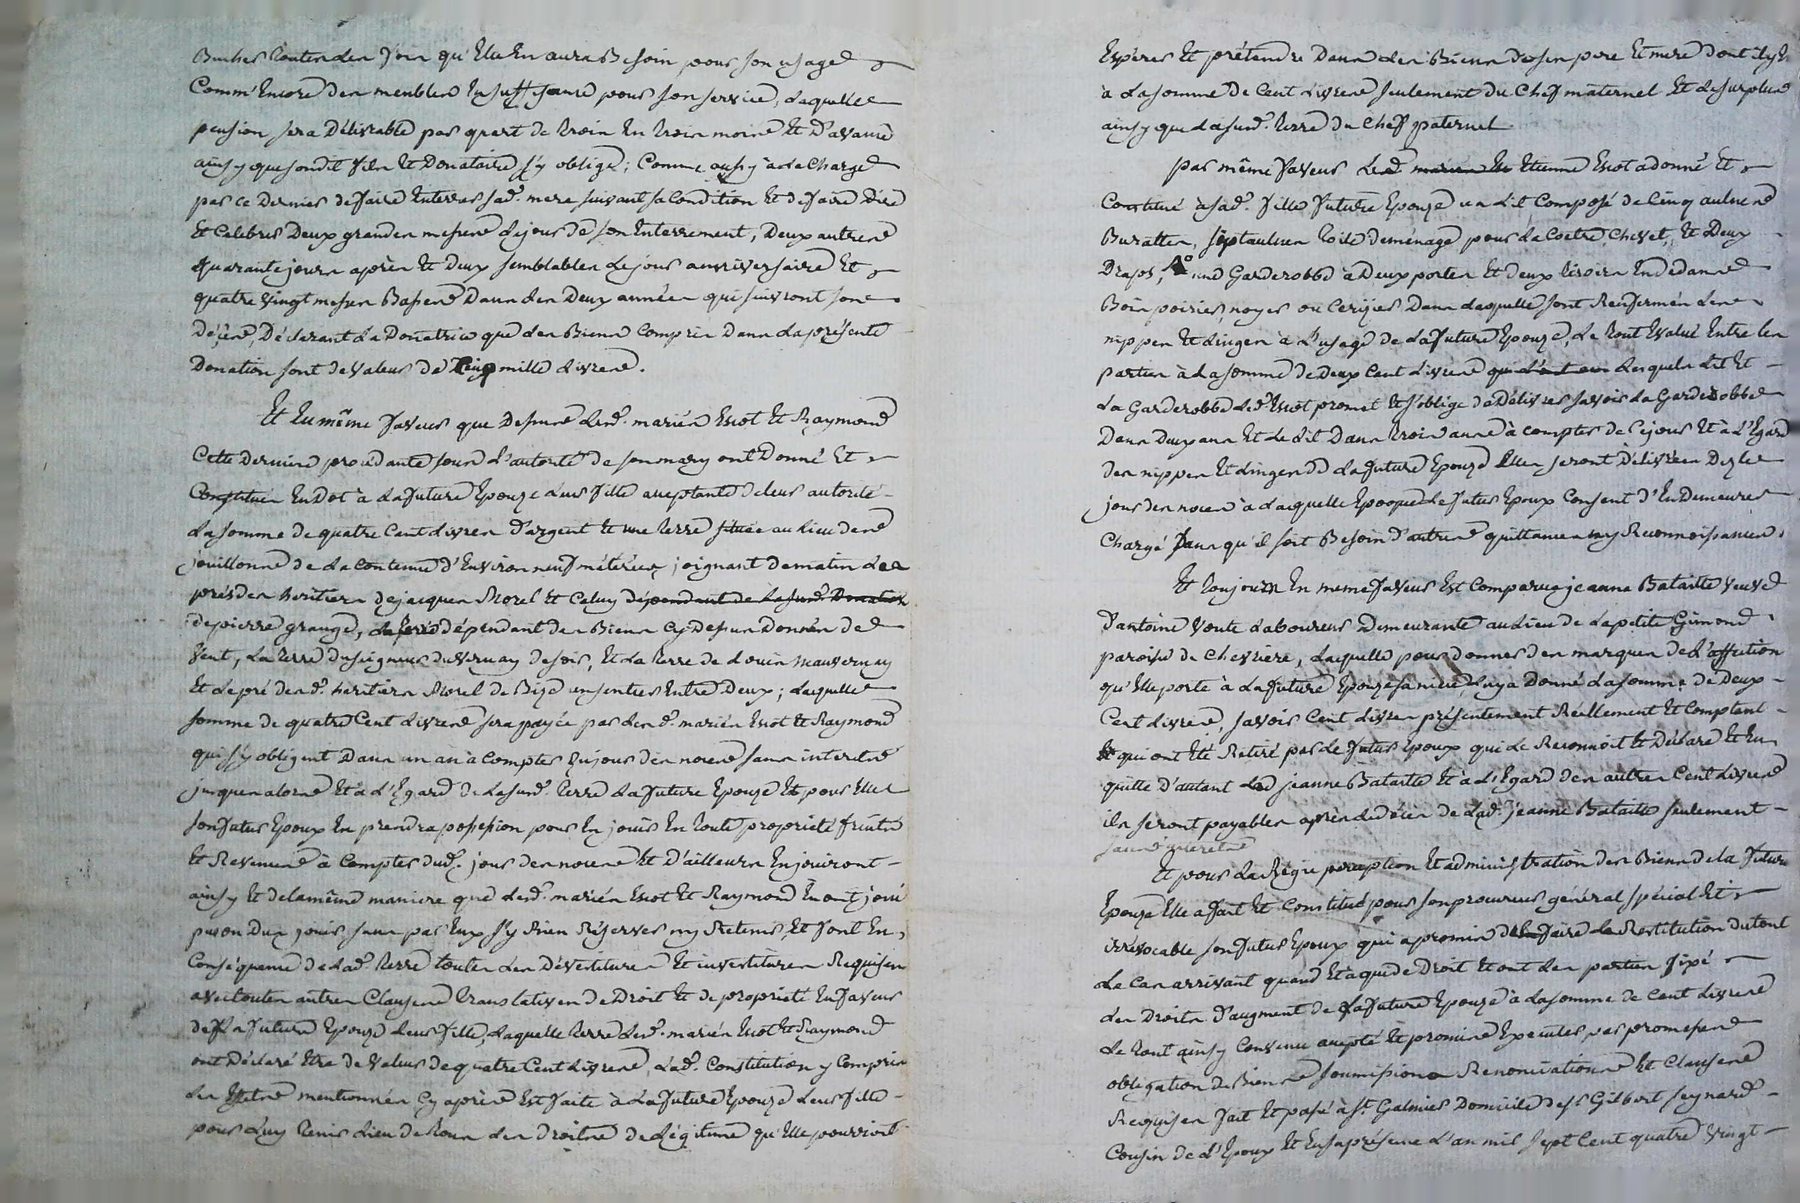 Buches toutes les fois qu'Elle En aura Besoin pour son usage
Comm'Encore des meubles En suffisance pour son service, laquelle
pension sera Délivrable par quart de trois En trois mois Et D'avance
ainsy que sondit fils Et Donataire s'y oblige; Comme aussy à la Charge
par ce Dernier de faire Enterrer sad. mere suivant sa Condition Et de faire Dire
Et Celebrer Deux grandes messes le jour de son Enterrement, Deux autres
quarante jours après Et Deux semblables le jour anniversaire Et
quatre vingt messes Basses Dans les Deux années qui suivront son
Décès, Déclarant la Donatrice que les Biens Compris Dans la présente
Donation sont de Valeur de Cinq mille livres.
Et En même faveur que Dessus lesd. mariés Escot Et Raymond
Cette Derniere procedante sous l'autorité de son mary ont Donné Et
Constitué En Dot à la future Epouze leur fille acceptante de leur autorité
la somme de quatre Cent livres D'argent Et une terre située au lieu des
jouillonne de la Contenue d'Environ neuf métérées, joignant de matin les
prés des heritiers de jacques Morel Et Celuy dépendant de lasusd. Donation
de pierre grange, dépendant des Biens Cy Dessus Donnés de
Vent, la terre du seigneur du Vernay de soir, Et la terre de Louis mauvernay
Et le pré desd. heritiers Morel de Bize un sentier Entre Deux; laquelle
somme de quatre Cent livres sera payée par lesd. mariés Escot Et Raymond
qui s'y obligent Dans un an à Compter du jour des noces sans interets
jusques alors Et à l'Egard de lasusd. terre la future Epouze Et pour Elle
son futur Epoux En prendra possession pour En jouir En toute propriété fruits
Et Revenus à Compter dud. jour des noces Et D'ailleurs En jouiront
ainsy Et de la même maniere que lesd. mariés Escot Et Raymond En ont joui
pu ou Dux jouir sans par Eux s'y Rien Réserver ny Retenir, Et font En
Conséquence de lad. terre toutes les Dévestitures Et investitures Requises
avec toutes autres Clauses translatives de Droit Et de propriété En faveur
de la future Epouze leur fille, laquelle terre lesd. mariés Escot Et Raymond
ont Déclaré Etre de Valeur de quatre Cent livres, lad. Constitution y Compris
les Effets mentionnés Cy après Est faite à la future Epouze leur fille
pour luy tenir lieu de tous les droits de Légitime qu'Elle pourroit
Espérer Et prétendre Dans les Biens de ses pere Et mere dont il y E
à la somme de Cent livres seulement du Chef maternel Et le surplus
ainsy que lasusd. terre du Chef paternel
par même faveur Led. Etienne Escot a donné Et
Constitué à sad. fille future Epouze un Lit Composé de Cinq aulnes
Buratter, sept aulnes toile de ménage pour la Coetre, Chevet, Et Deux
Draps, 1° une Garderobbe à Deux portes Et deux tiroirs En dedans
Bois poirier, noyer ou Cerisier Dans laquelle sont Renfermés les
nippes Et linges à l'usage de la future Epouze, Le tout Evalué Entre les
parties à la somme de Deux Cent livres lesquels Lit Et
La Garderobbe led. Escot promet Et s'oblige de Délivrer savoir la Garderobbe
Dans Deux ans Et le Lit Dans trois ans à compter de Cejour Et à l'Egard
des nippes Et linges de la future Epouze Elles seront Délivrées Dez le
jour des noces à laquelle Epoque le futur Epoux Consent d'En Demeurer
Chargé sans qu'il soit Besoin d'autres quittances ny Reconnoissances.
Et toujours En meme faveur Est Comparue jeanne Bataille veuve
d'antoine Voute laboureur Demeurante au lieu de la petite Gimond
paroisse de Chevriere, laquelle pour donner des marques de l'affection
qu'Elle porte à la future Epouze sa niece, luy a Donné la somme de Deux
Cent livres, savoir Cent livres présentement Réellement Et Comptant
qui ont Eté Retiré par le futur Epoux qui Le Reconnoit Et Déclare Et En
quitte d'autant lad jeanne Bataille Et à l'Egard des autres Cent livres
ils seront payables après le décès de lad. jeanne Bataille seulement
sans interets
Et pour la Régie perception Et administration des Biens de la future
Epouze Elle a fait Et Constitué pour son procureur général spécial Et
irrévocable son futur Epoux qui a promis faire Restitution du tout
Le Cas arrivant quand Et à qui de Droit Et ont les parties fixé
les Droits D'augment de la future Epouze à la somme de Cent livres
Le tout ainsy Convenu accepté Et promis Executer par promesses
obligation de Biens soumissions Renonciations Et Clauses
Requises fait Et passé à St. Galmier Domicile de sr Gilbert peynard
Cousin de l'Epoux Et En sa présence l'an mil sept Cent quatre vingt